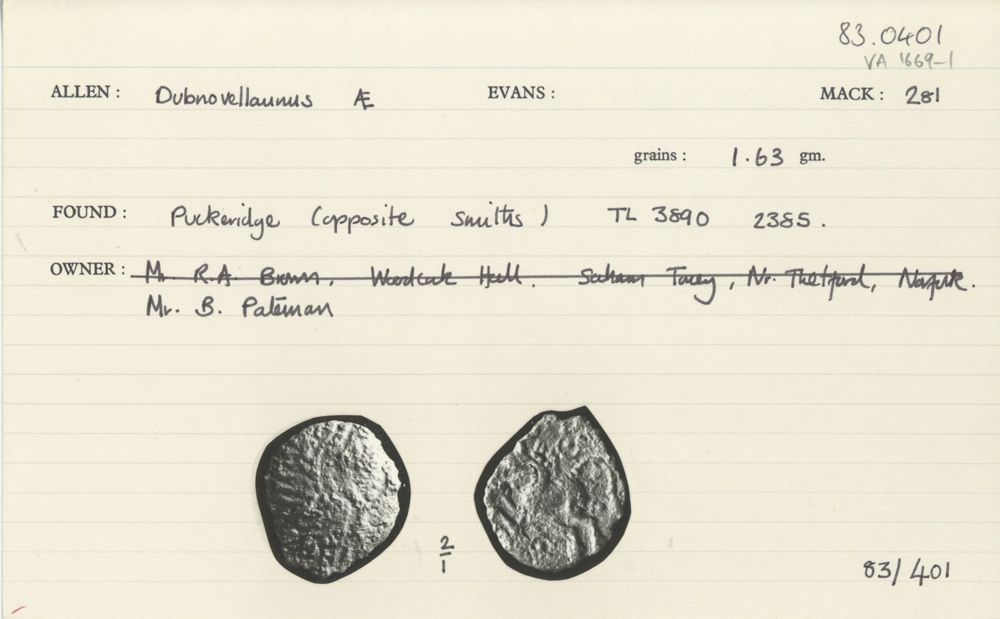 83.0401
VA 1669-1
ALLEN : Dubnovellaunus Æ EVANS : MACK : 281
grains : 1.63 gm.
FOUND : Puckeridge (opposite Smiths) TL 3890 2385.
OWNER : Mr. R.A Brown, Woodcock Hall. Saham Toney, Nr. Thetford, Norfolk.
Mr. B. Pateman
2/1
83/401